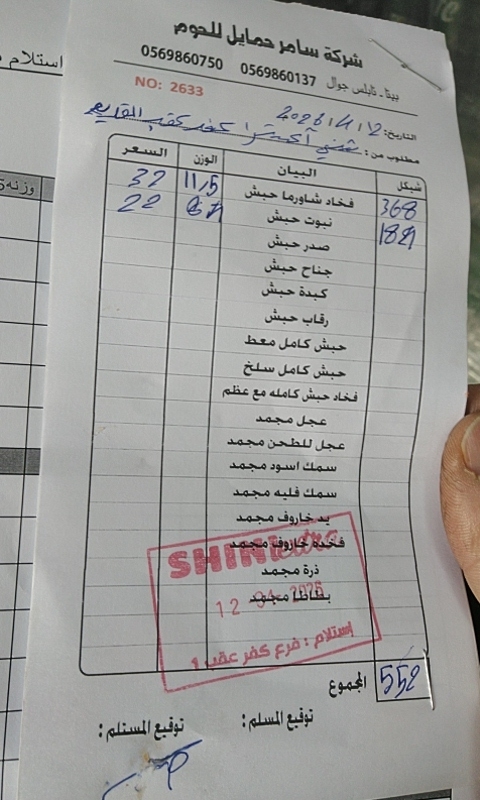 شركة سامر حمايل للحوم
بيتا - نابلس جوال 0569860137 0569860750
NO: 2633
استلام
التاريخ: 2026/4/12
مطلوب من: شني اكسترا كفر عقب
شيكل البيان الوزن السعر
368 فخاد شاورما حبش 11,5 32
184 نبوت حبش 22
صدر حبش
جناح حبش
كبدة حبش
رقاب حبش
حبش كامل معط
حبش كامل سلخ
فخاد حبش كامله مع عظم
عجل مجمد
عجل للطحن مجمد
سمك اسود مجمد
سمك فليه مجمد
يد خاروف مجمد
فخدة خاروف مجمد
ذرة مجمد
بطاطا مجمد
SHINI extra
12 04 2026
إستلام : فرع كفر عقب 1
المجموع 552
توقيع المسلم : توقيع المستلم :
وزنه